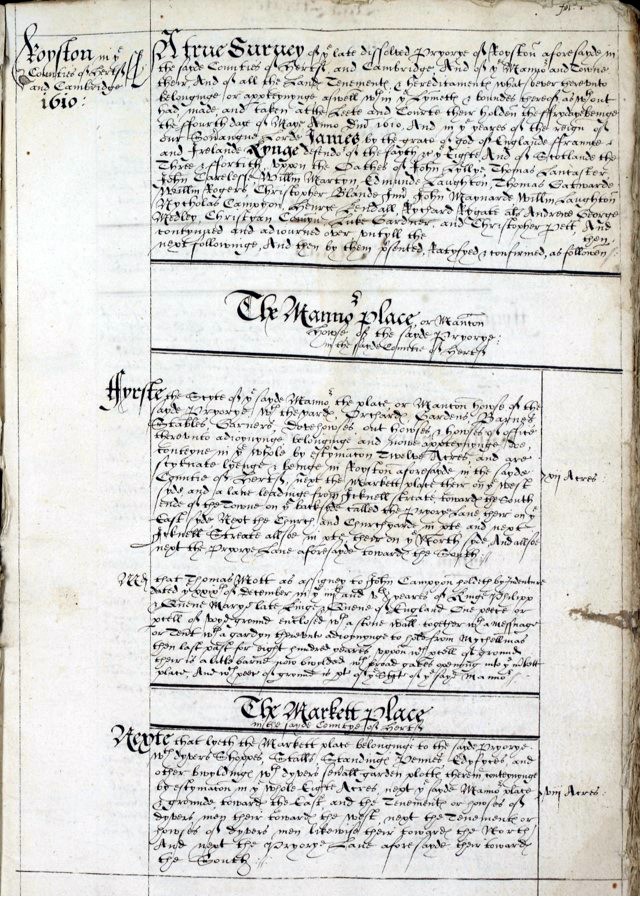 fol: 1
Royston in yͤ
Counties of Hertf
and Cambridge
1610:
A true Survey of yͤ late dissolved Pryorye of Royston aforesayde in
the sayde Counties of Hertf, and Cambridge, And of yͤ Mannoͬ and Towne
their, And of all the Land Tenement, & hereditament whatsoever therevnto
belonginge or apperteynynge aswell wͭʰin yͤ Lymett & boundes thereof as wͭʰout
had made and taken at the Leete and Courte their holden the
the ffourth daye of Maye Anno Dm̃ 1610, And in yͤ yeares of the reign of
our Soveraigne Lorde James by the grace of god of Englande ffrance &
and Irelande Kynge defendͬ of the fayth &c yͤ Eighte And of Scotlande the
Three & ffortith, vppon the Oathes of John Lyllye, Thomas Lancaster
John Carelesse Willm̃ Martyn, Edmunde Laughton, Thomas Eastwarde
Willm̃ Rogers, Christopher Blande Junͬ, John Maynarde Willm̃ Laughton
Nycholas Campyon, Henrye Kendall Rychard Andrewe George
Medley, Christyan Luke Gardner, and Christopher Pett, And
contynued and adiourned over, vntyll the then
next followinge, And then by them p̱sented, Ratyfyed & confirmed, as followeth
The Mannoͬ place, or Mantion
Howse of the sayde Pryorye:
in the sayde Countie of Hertf
ffyrste the Scyte of yͤ sayde Mannoͬ the place or Mantion howse of the
sayde Pryorye, wͭʰ the yarde, Orchard, Gardens, Barnes
Stables, Garners, Dovehowses out howses & howses of office
therevnto adioynynge belonginge and nowe apperteynynge doe
conteyne in yͤ whole by estymation Twelve Acres, and are
scytuate lyenge & beinge in Royston aforesayde in the sayde
Countie of Hertf, next the Markett place their on yͤ West
syde and a lane leadinge from Icknell streate toward the South
ende of the Towne on yͤ backside called the Pryorye Lane their on yͤ
East syde Next the Church and Churchyarde in p̱te and next
Icknell Streate allsoe in p̱te their on yͤ North syde, And allsoe
next the Pryorye Lane aforesayde toward the South
xij Acres
Md that Thomas Mott as assigney to John Campyon holdeth by Indenture
dated yͤ xxxᵗʰ of December in yͤ iiij and vᵗʰ yeares of Kinge Phelipp
& Quene Marye late Kinge & Quene of England One peece or
p̱cell of voyd ground enclosed wͭʰ a stone wall together wͭʰ a messuage
or Tent wͭʰ a gardyn therevnto adioynynge to from Mychellmas
then last past for eight hundred yeares vppon wͨʰ p̱cell of ground
their is a litle barne now bwylded wͭʰ broad gates openinge into yͤ mͬkett
place, And wͨʰ peec of ground is p̱t of yͤ Scyt of yͤ sayd Mannoͬ
The Markett place
in the sayde Countye of Hertf
Nexte that lyeth the Markett place belonginge to the sayde Pryorye
wͭʰ dyvers Shoppes, Stalls, Standinge Pennes Edyfyces, and
other bwyldinge wͭʰ dyvers small garden plotte therein conteynynge
by estymation in yͤ whole Eighte Acres, next yͤ sayde Mannoͬ place
& grounde toward the East and the Tenement or howses of
dyvers men their toward the West, next the Tenement or
howses of dyvers men likewise their toward the North
And next the Pryorye Lane aforesayde their toward
the South
viij Acres: